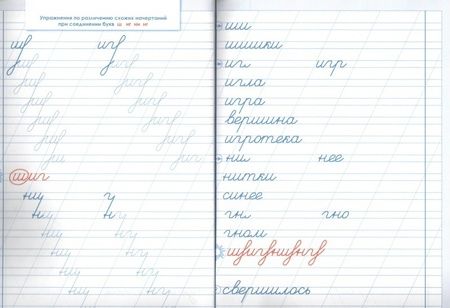 Упражнения по различению схожих начертаний
при соединении букв щ иг ни нг
щ иг
щ иг
щ иг
щ иг
щ иг
щ иг
щ иг
щиг
нщ г
нг нг
нщ нг
нщ нг
нщ нг
нщ нг
ши
шишки
иг игр
игла
игра
вершина
игротека
ни нее
нитки
синее
гн гно
гном
щигнщнг
свершилось